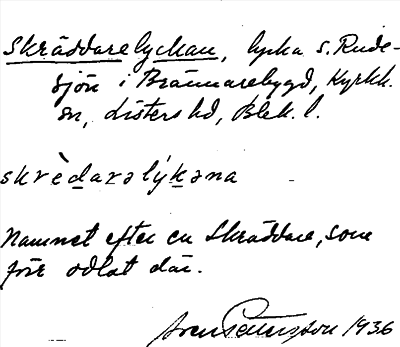 Skräddarelyckan, lycka s. Rude-
sjön i Brännarebygd, Kyrkh.
sn, Listers hd, Blek. l.
skrèdarəlýkəna
Namnet efter en skräddare, som
förr odlat där.
Sven Petersson 1936